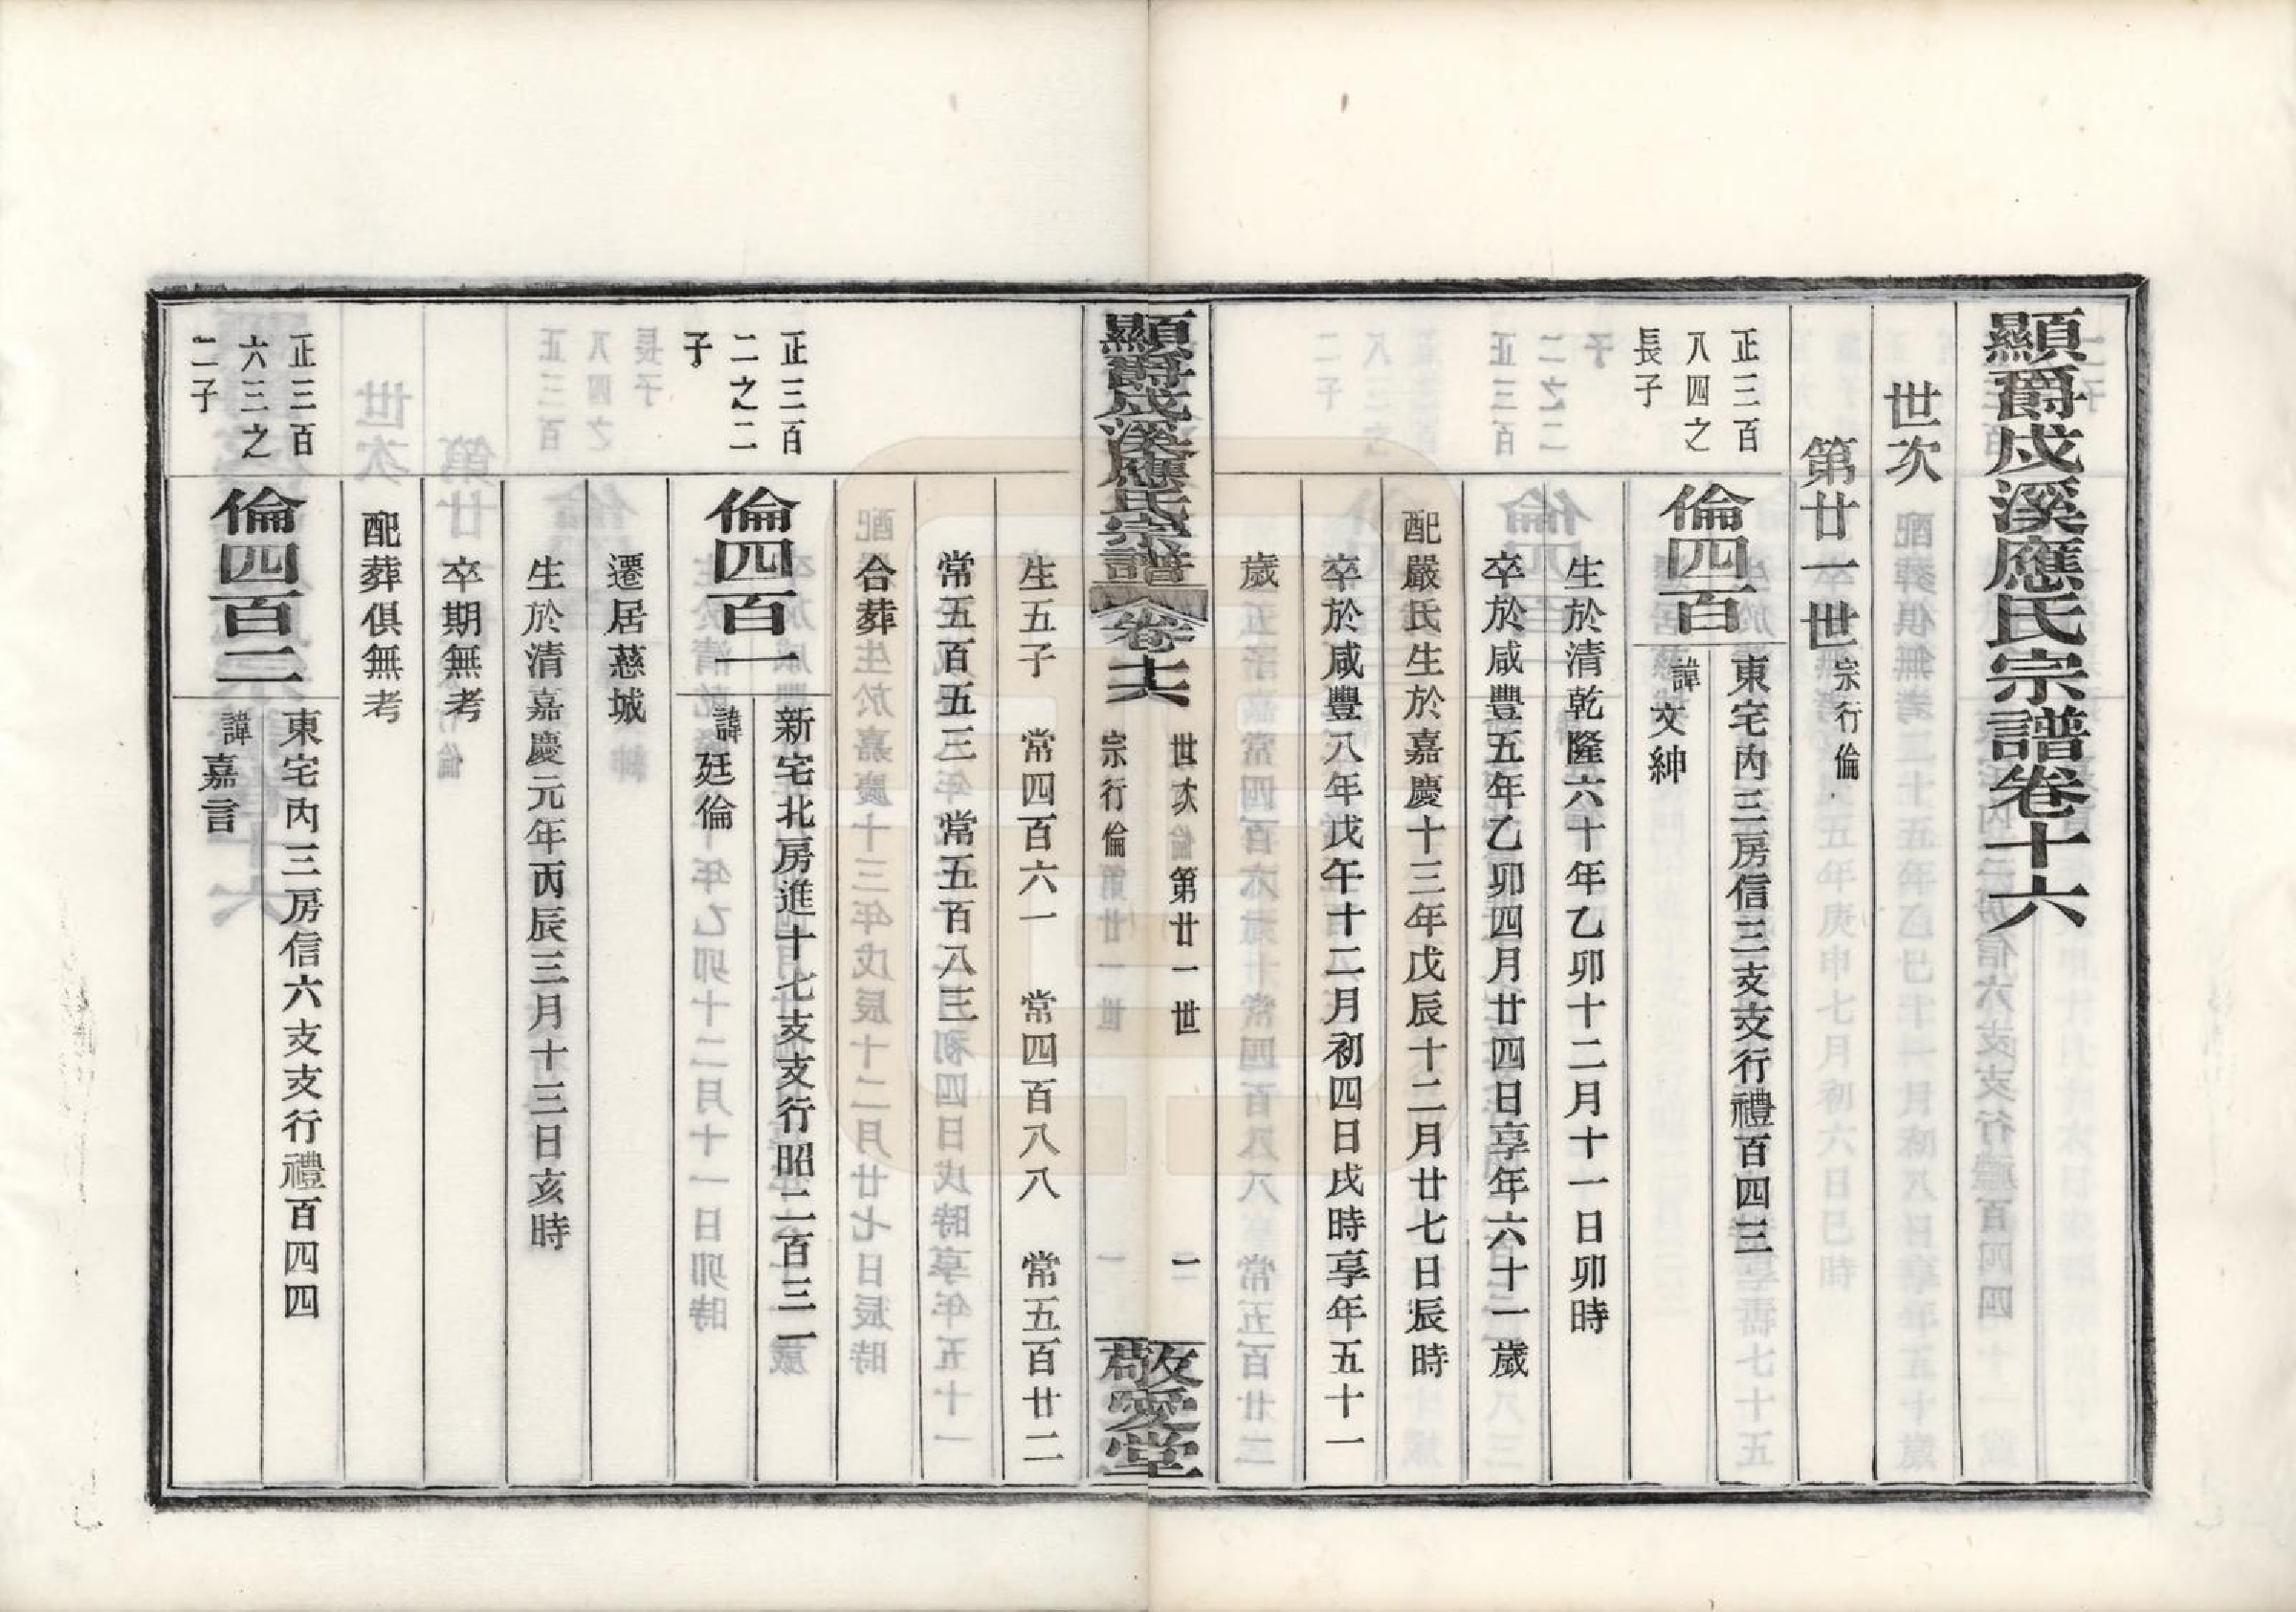 顯爵戍溪應氏宗譜卷十六
世次
第廿一世 宗行倫
正三百
八四之
長子
倫四百
東宅內三房信三支支行禮百四三
諱文紳
生於清乾隆六十年乙卯十二月十一日卯時
卒於咸豐五年乙卯四月廿四日享年六十一歲
配嚴氏生於嘉慶十三年戊辰十二月廿七日辰時
卒於咸豐八年戊午十二月初四日戌時享年五十一
歲
顯爵戍溪應氏宗譜 卷十六
世次 第廿一世 一
宗行倫
敬愛堂
生五子 常四百六一 常四百八八 常五百廿二
常五百五三 常五百八三
合葬
正三百
二之二
子
倫四百一
新宅北房進十七支支行昭二百三一
諱廷倫
遷居慈城
生於清嘉慶元年丙辰三月十三日亥時
卒期無考
配葬俱無考
正三百
六三之
二子
倫四百二
東宅內三房信六支支行禮百四四
諱嘉言